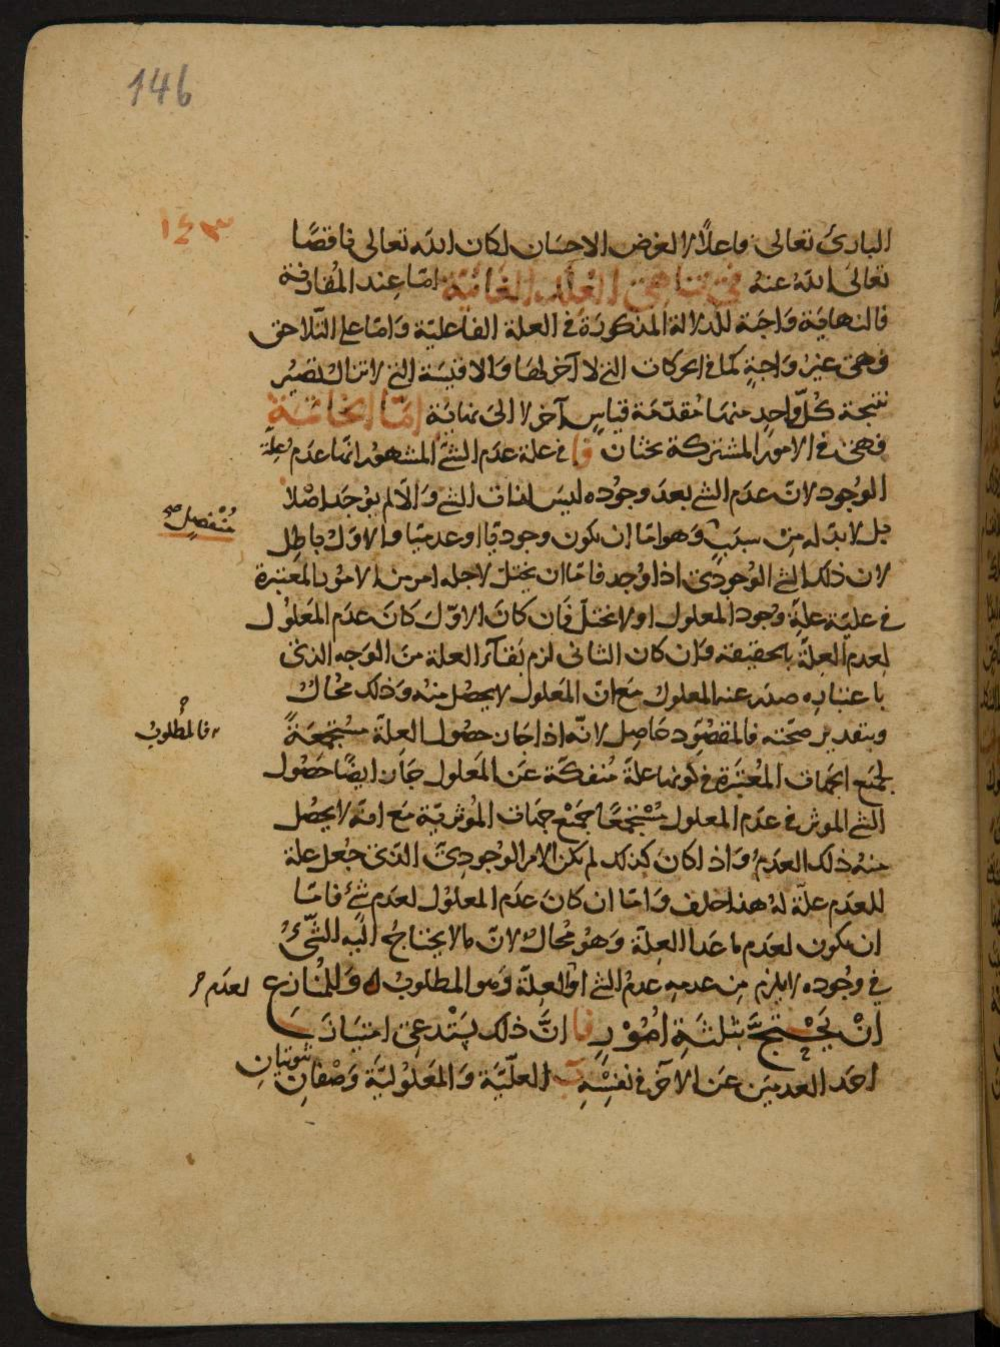 146
١٤٣
البارئ تعالى فاعلًا لالغرض الاحسان لكان الله تعالى ناقصًا
تعالى الله عنه في تناهى العلل الغائية امّا عند المُفارقة
فالنهاية واجبة للدلالة المذكورة في العلة الفاعلية وامّا على التلاحق
فهى غير واجبةٍ كما في الحركات التى لا آخر لها والاقيسة التى لاتناك تصير
نتيجة كلّ واحدٍ منها مُقدّمة قياسٍ آخر لا الى نهاية امّا الخاتمة
فهى في الامور المشتركة بحثان فا في علة عدم الشئ المشهور انما عدم علة
الوجود لانّ عدم الشئ بعد وجوده ليس لذات الشئ والّا لم يوجد اصلًا
بل لابدّ له من سببٍ وهو امّا ان يكون وجوديًا او عدميًا والاوّل باطل
منفصل صح
لان ذلك الشئ الوجودىّ اذا وُجد فامّا ان يختلّ لاجله امر من الامور المعتبرة
في عليّة علّة وجود المعلول او لا يختلّ فان كان الاوّل كان عدم المعلول
لعدم العلّة بالحقيقة وان كان الثانى لزم بقاء العلة من الوجه الذى
باعتباره صدر عنه المعلول مع انّ المعلول لا يحصل منه وذلك محال
وبتقدير صحّته فالمقصود حاصل لانّه اذا جاز حصول العلّة مستجمعةً
فالمطلوب
لجميع الجهات المُعتبرة في كونها علةً مُنفكّة عن المعلول جاز ايضًا حصول
الشئ الموثر في عدم المعلول مستجمعًا جميع جهات المُوثريّة مع انه لا يحصل
منه ذلك العدم واذا كان كذلك لم يكن الامر الوجودىّ الذى جعل علة
للعدم علّة له هذا خلف وامّا ان كان عدم المعلول لعدم شئ فامّا
ان يكون لعدم ما عدا العلّة وهو محال لانّ ما لا يحتاج اليه الشّئُ
في وجوده لا يلزم من عدمه عدمُ الشئ او العلّة وهو المطلوب وللمنازع
لعدم
انْ يحْتجَّ بثلثةِ اُمُوْرٍ فا انَّ ذلك يستدعى امتياز
احد العدمين عن الآخر في نفسه ب العلّيّة والمعلوليّة وصفان
ثبوتيان